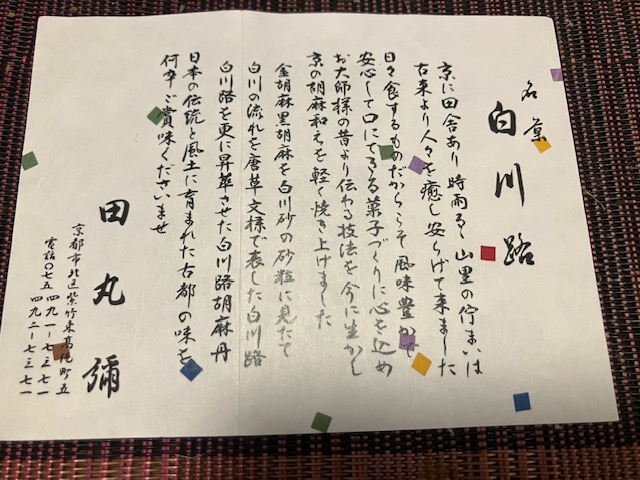 名菓
白川路
京に田舎あり 時雨るゝ山里の佇まいは
古来より人々を癒し安らげて来ました
日々食するものだからこそ風味豊かで
安心して口にできる菓子づくりに心を込め
お大師様の昔より伝わる技法を今に生かし
京の胡麻和えを軽く焼き上げました
金胡麻黒胡麻を白川砂の砂粒に見たて
白川の流れを唐草文様で表した白川路
白川路を更に昇華させた白川路胡麻丹
日本の伝統と風土に育まれた古都の味を
何卒ご賞味くださいませ
田丸彌
京都市北区紫竹東高縄町五
電話〇七五 四九一-七三七一
四九二-七三七一